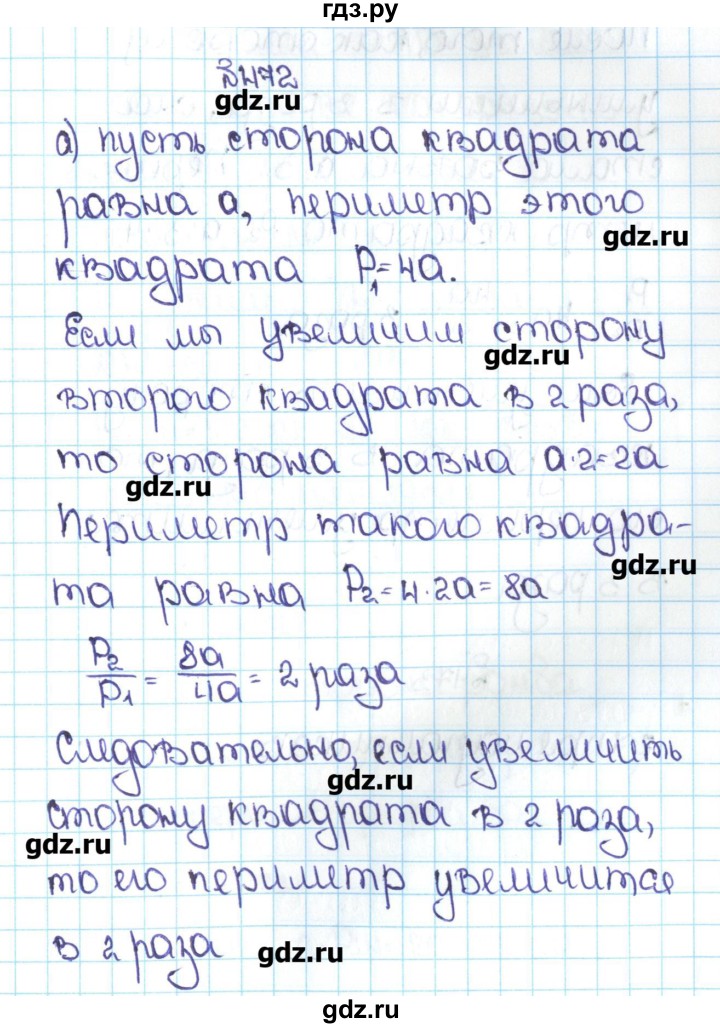 гдз.ру
№472
gdz.ru
а) пусть сторона квадрата
равна а, периметр этого
gdz.ru
квадрата P₁=4а.
Если мы увеличим сторону
gdz.ru
второго квадрата в 2 раза,
то сторона равна а·2=2а
gdz.ru
Периметр такого квадра-
gdz.ru
та равна P₂=4·2а=8а
P₂/P₁ = 8а/4а = 2 раза
Следовательно, если увеличить
gdz.ru
сторону квадрата в 2 раза,
gdz.ru
то его периметр увеличится
в 2 раза gdz.ru
gdz.ru